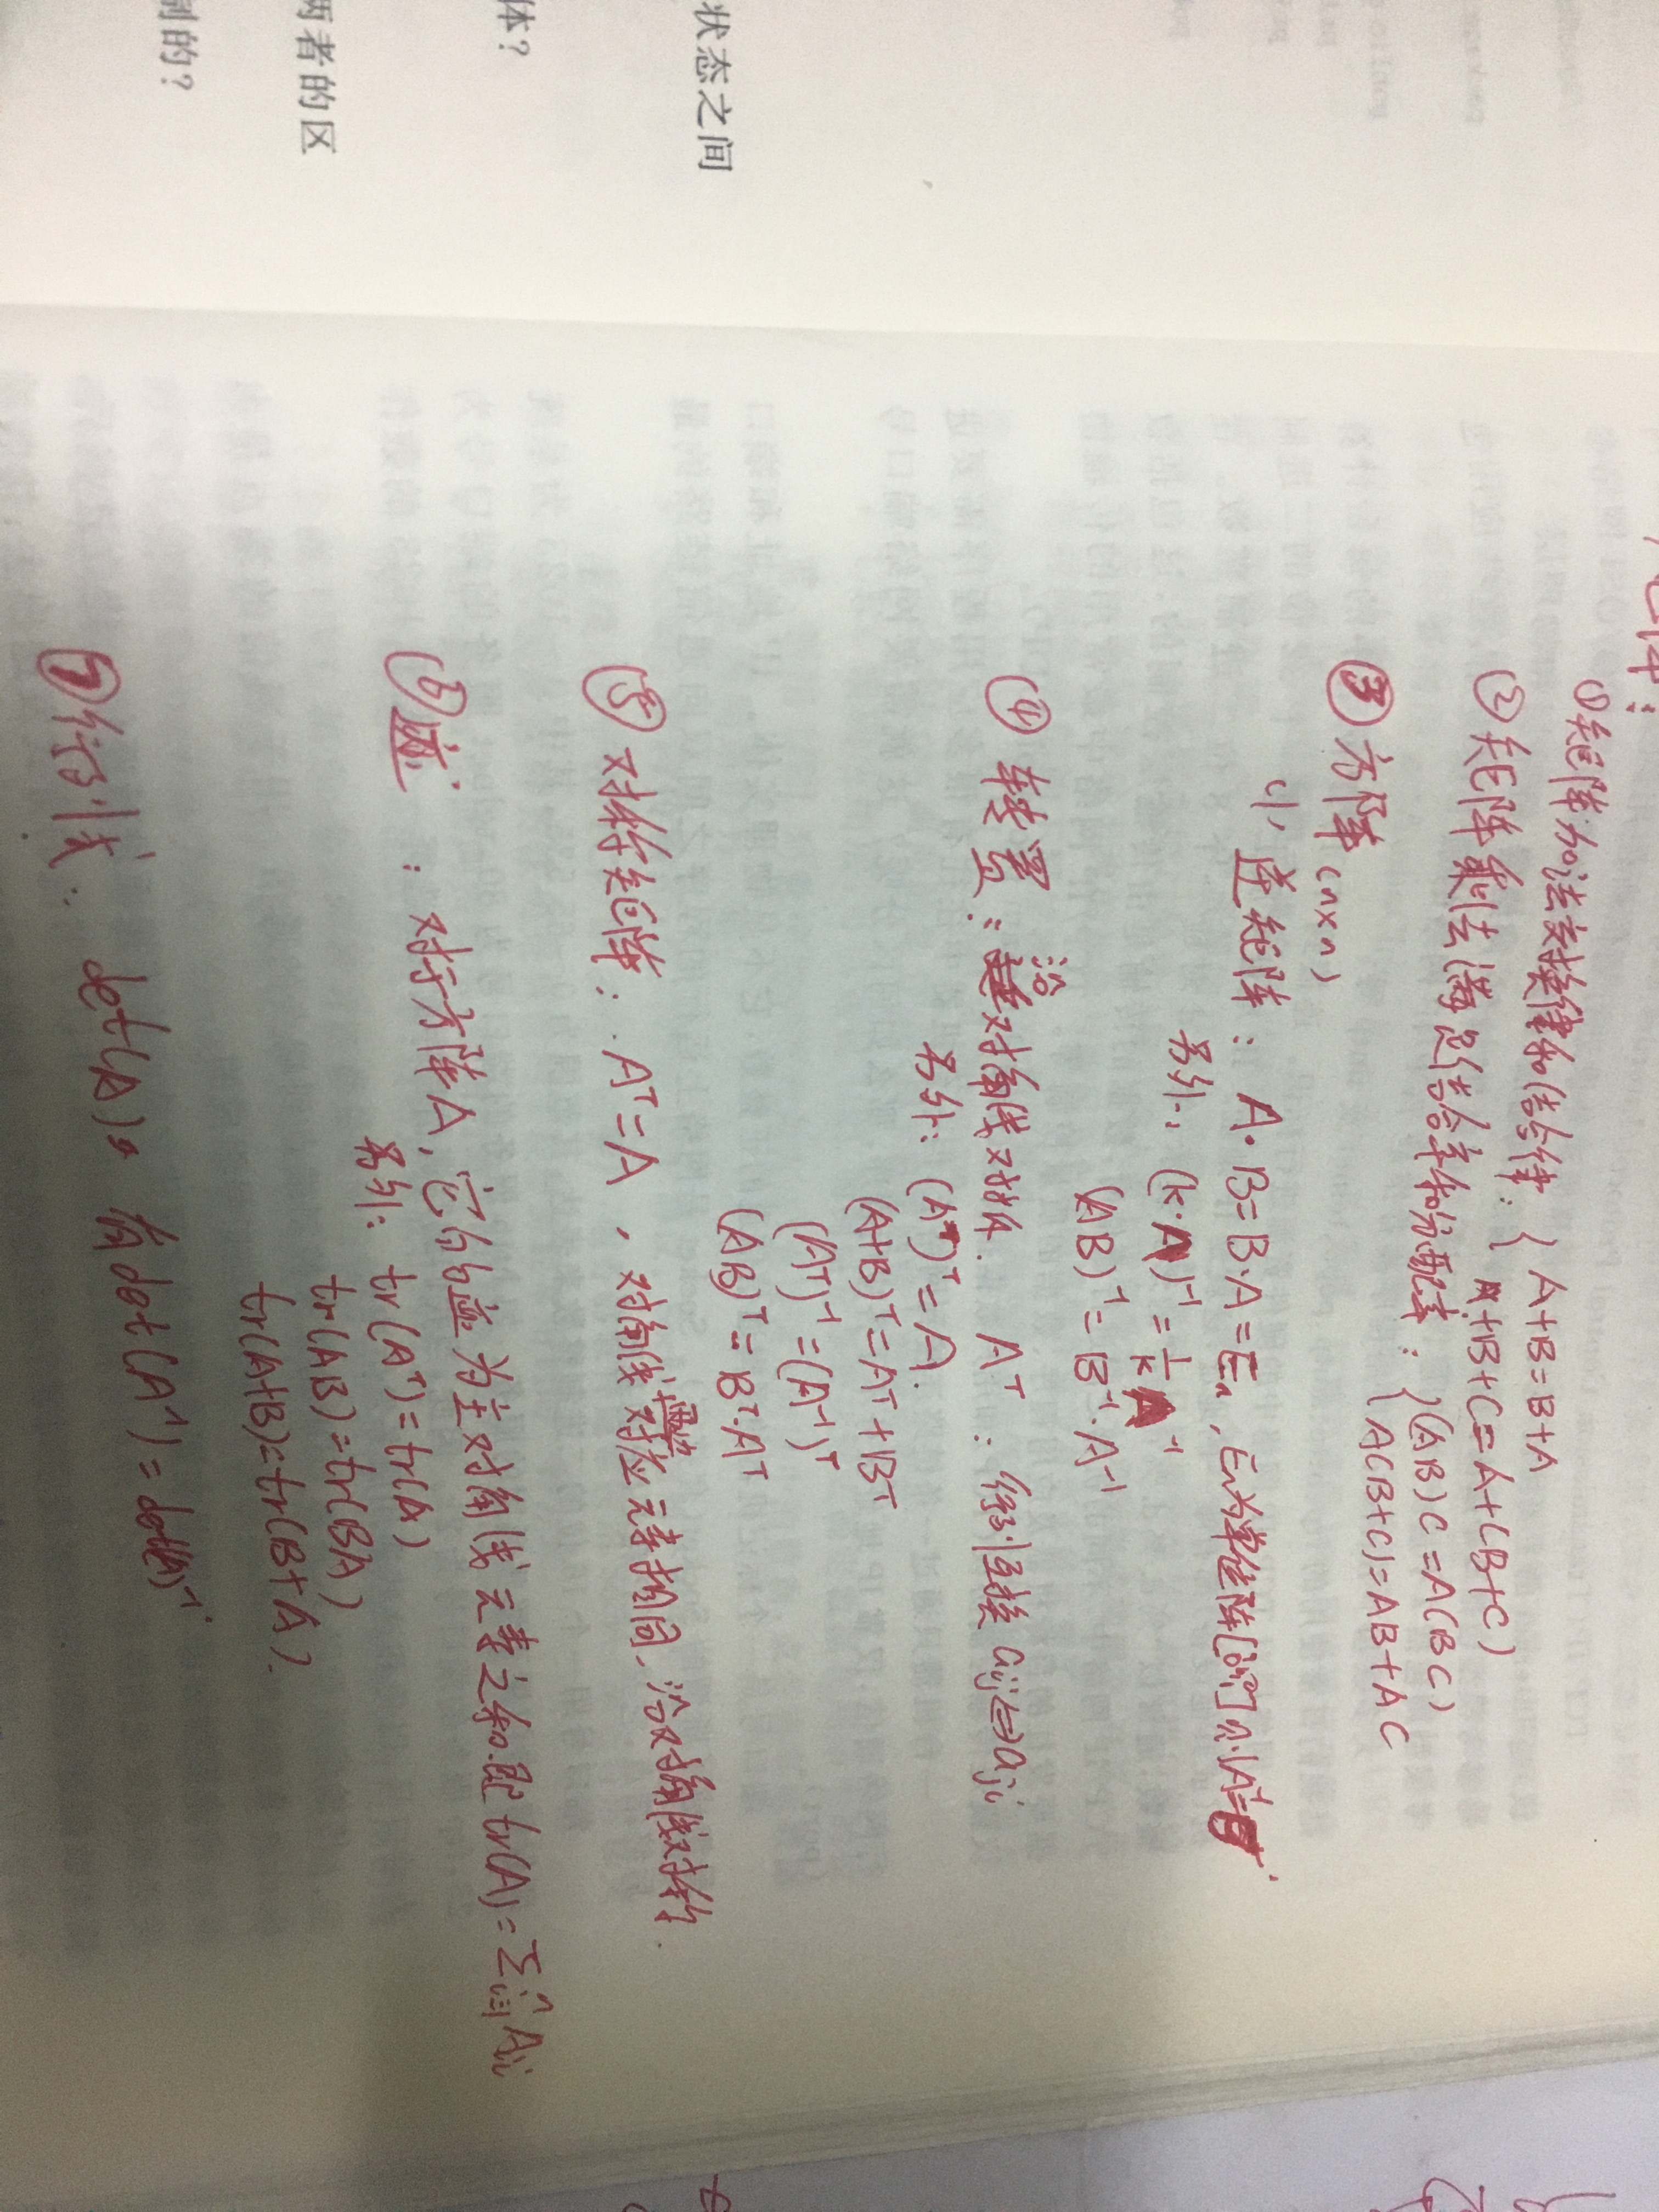 状态之间
体?
两者的区
制的?
①矩阵加法交换律和结合律: { A+B=B+A
A+B+C=A+(B+C)
②矩阵乘法满足结合率和分配率: { (AB)C=A(BC)
A(B+C)=AB+AC
③方阵(n×n)
逆矩阵: A·B=B·A=En, En为单位阵
另外: (k·A)⁻¹=1/k A⁻¹
(AB)⁻¹=B⁻¹·A⁻¹
④ 转置: 沿对角线对称. Aᵀ: 行列互换 aij⇔aji
另外: (Aᵀ)ᵀ=A.
(A+B)ᵀ=Aᵀ+Bᵀ
(Aᵀ)⁻¹=(A⁻¹)ᵀ
(AB)ᵀ=Bᵀ·Aᵀ
⑤ 对称矩阵: Aᵀ=A, 对角线对应元素相同, 沿对角线对称.
⑥迹: 对于方阵A, 它的迹为主对角线元素之和.即 tr(A)=Σⁿᵢ₌₁Aii
另外: tr(Aᵀ)=tr(A)
tr(AB)=tr(BA)
tr(A+B)=tr(B+A).
⑦行列式: det(A). 有det(A⁻¹)=det(A)⁻¹.